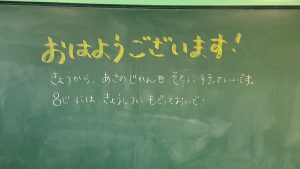 おはようございます!
きょうから、あさのじかんも そとに行っていいです。
8じには きょうしつに もどっておいで!